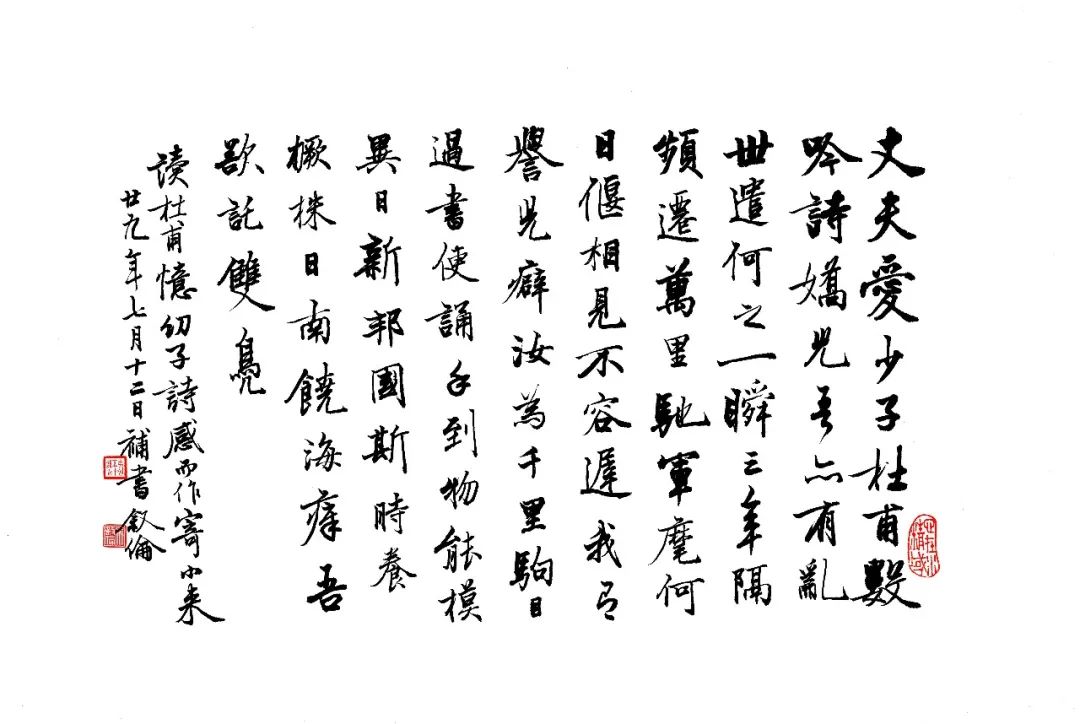 丈夫愛少子杜甫數
吟詩嬌児吾亦有亂
世遣何之一瞬三年隔
頻遷萬里馳軍麾何
日偃相見不容遲我有
譽児癖汝為千里駒目
過書使誦手到物能模
異日新邦國斯時養
橛株日南饒海瘴吾
欲託雙鳧
讀杜甫憶幼子詩感而作寄小來
廿九年七月十二日補書 叙倫